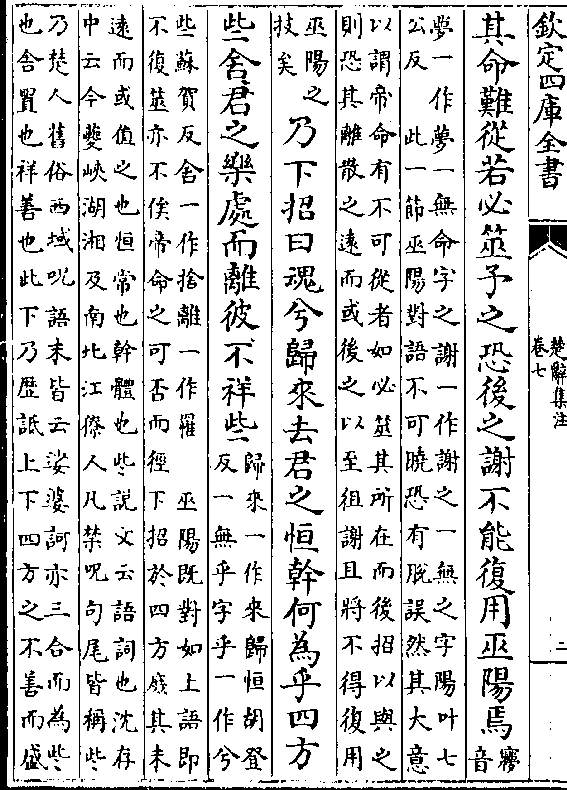 欽定四庫全書
楚辭集注
卷七
二
其命難從若必筮予之恐後之謝不能復用巫陽焉
㝱音
夢一作夢一無命字之謝一作謝之一無之字陽叶七
公反 此一節巫陽對語不可曉恐有脫誤然其大意
以謂帝命有不可從者如必筮其所在而後招以與之
則恐其離散之遠而或後之以至徂謝且將不得復用
巫陽之
技矣
乃下招曰魂兮歸來去君之恒幹何為乎四方
些舍君之樂處而離彼不祥些
歸來一作來歸恒胡登
反一無乎字乎一作兮
些蘇賀反舍一作捨離一作罹 巫陽既對如上語即
不復筮亦不俟帝命之可否而徑下招於四方庶其未
遠而或值之也恒常也幹體也些說文云語詞也沈存
中云今夔峽湖湘及南北江獠人凡禁呪句尾皆稱些
乃楚人舊俗西域呪語末皆云娑婆訶亦三合而為些
也舍置也祥善也此下乃歷詆上下四方之不善而盛